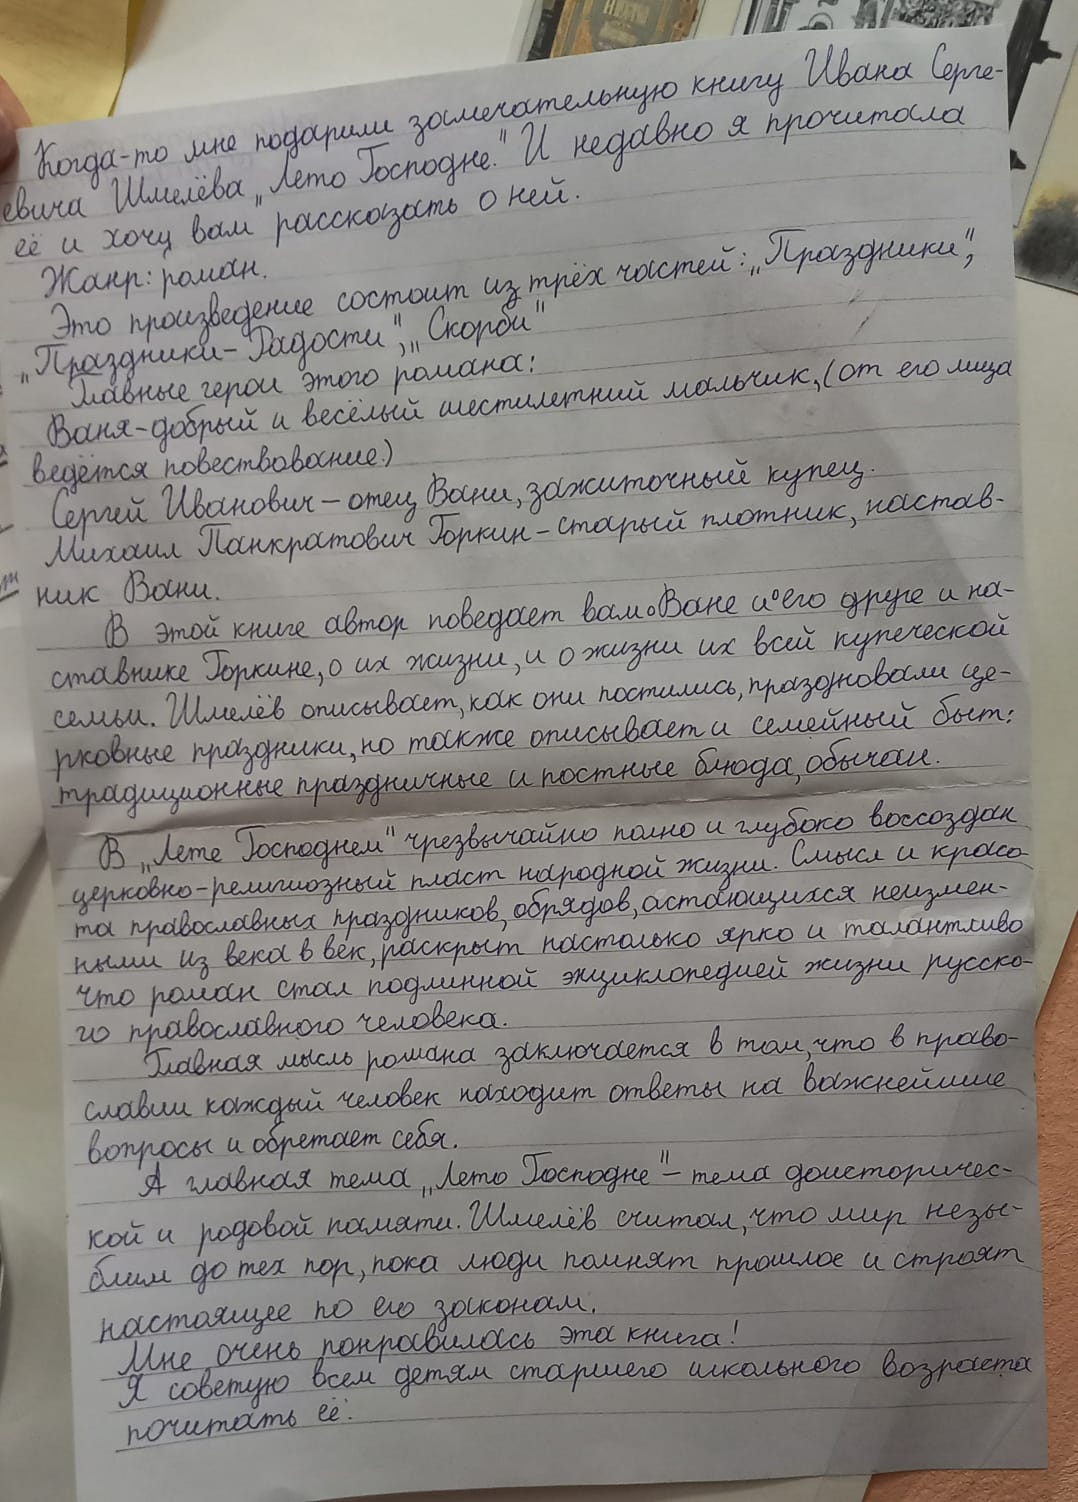 Когда-то мне подарили замечательную книгу Ивана Серге-
евича Шмелёва „Лето Господне." И недавно я прочитала
её и хочу вам рассказать о ней.
Жанр: роман.
Это произведение состоит из трёх частей: „Праздники",
„Праздники-Радости", „Скорби"
Главные герои этого романа:
Ваня-добрый и весёлый шестилетний мальчик, (от его лица
ведётся повествование.)
Сергей Иванович – отец Вани, зажиточный купец.
Михаил Панкратович Горкин – старый плотник, настав-
ник Вани.
В этой книге автор поведает вам о Ване и о его друге и на-
ставнике Горкине, о их жизни, и о жизни их всей купеческой
семьи. Шмелёв описывает, как они постились, праздновали це-
рковные праздники, но также описывает и семейный быт:
традиционные праздничные и постные блюда, обычаи.
В „Лете Господнем" чрезвычайно полно и глубоко воссоздан
церковно-религиозный пласт народной жизни. Смысл и красо-
та православных праздников, обрядов, остающихся неизмен-
ными из века в век, раскрыт настолько ярко и талантливо
что роман стал подлинной энциклопедией жизни русско-
го православного человека.
Главная мысль романа заключается в том, что в право-
славии каждый человек находит ответы на важнейшие
вопросы и обретает себя.
А главная тема „Лето Господне" – тема доисторичес-
кой и родовой памяти. Шмелёв считал, что мир незы-
блим до тех пор, пока люди помнят прошлое и строят
настоящее по его законам.
Мне очень понравилась эта книга!
Я советую всем детям старшего школьного возраста
почитать её.